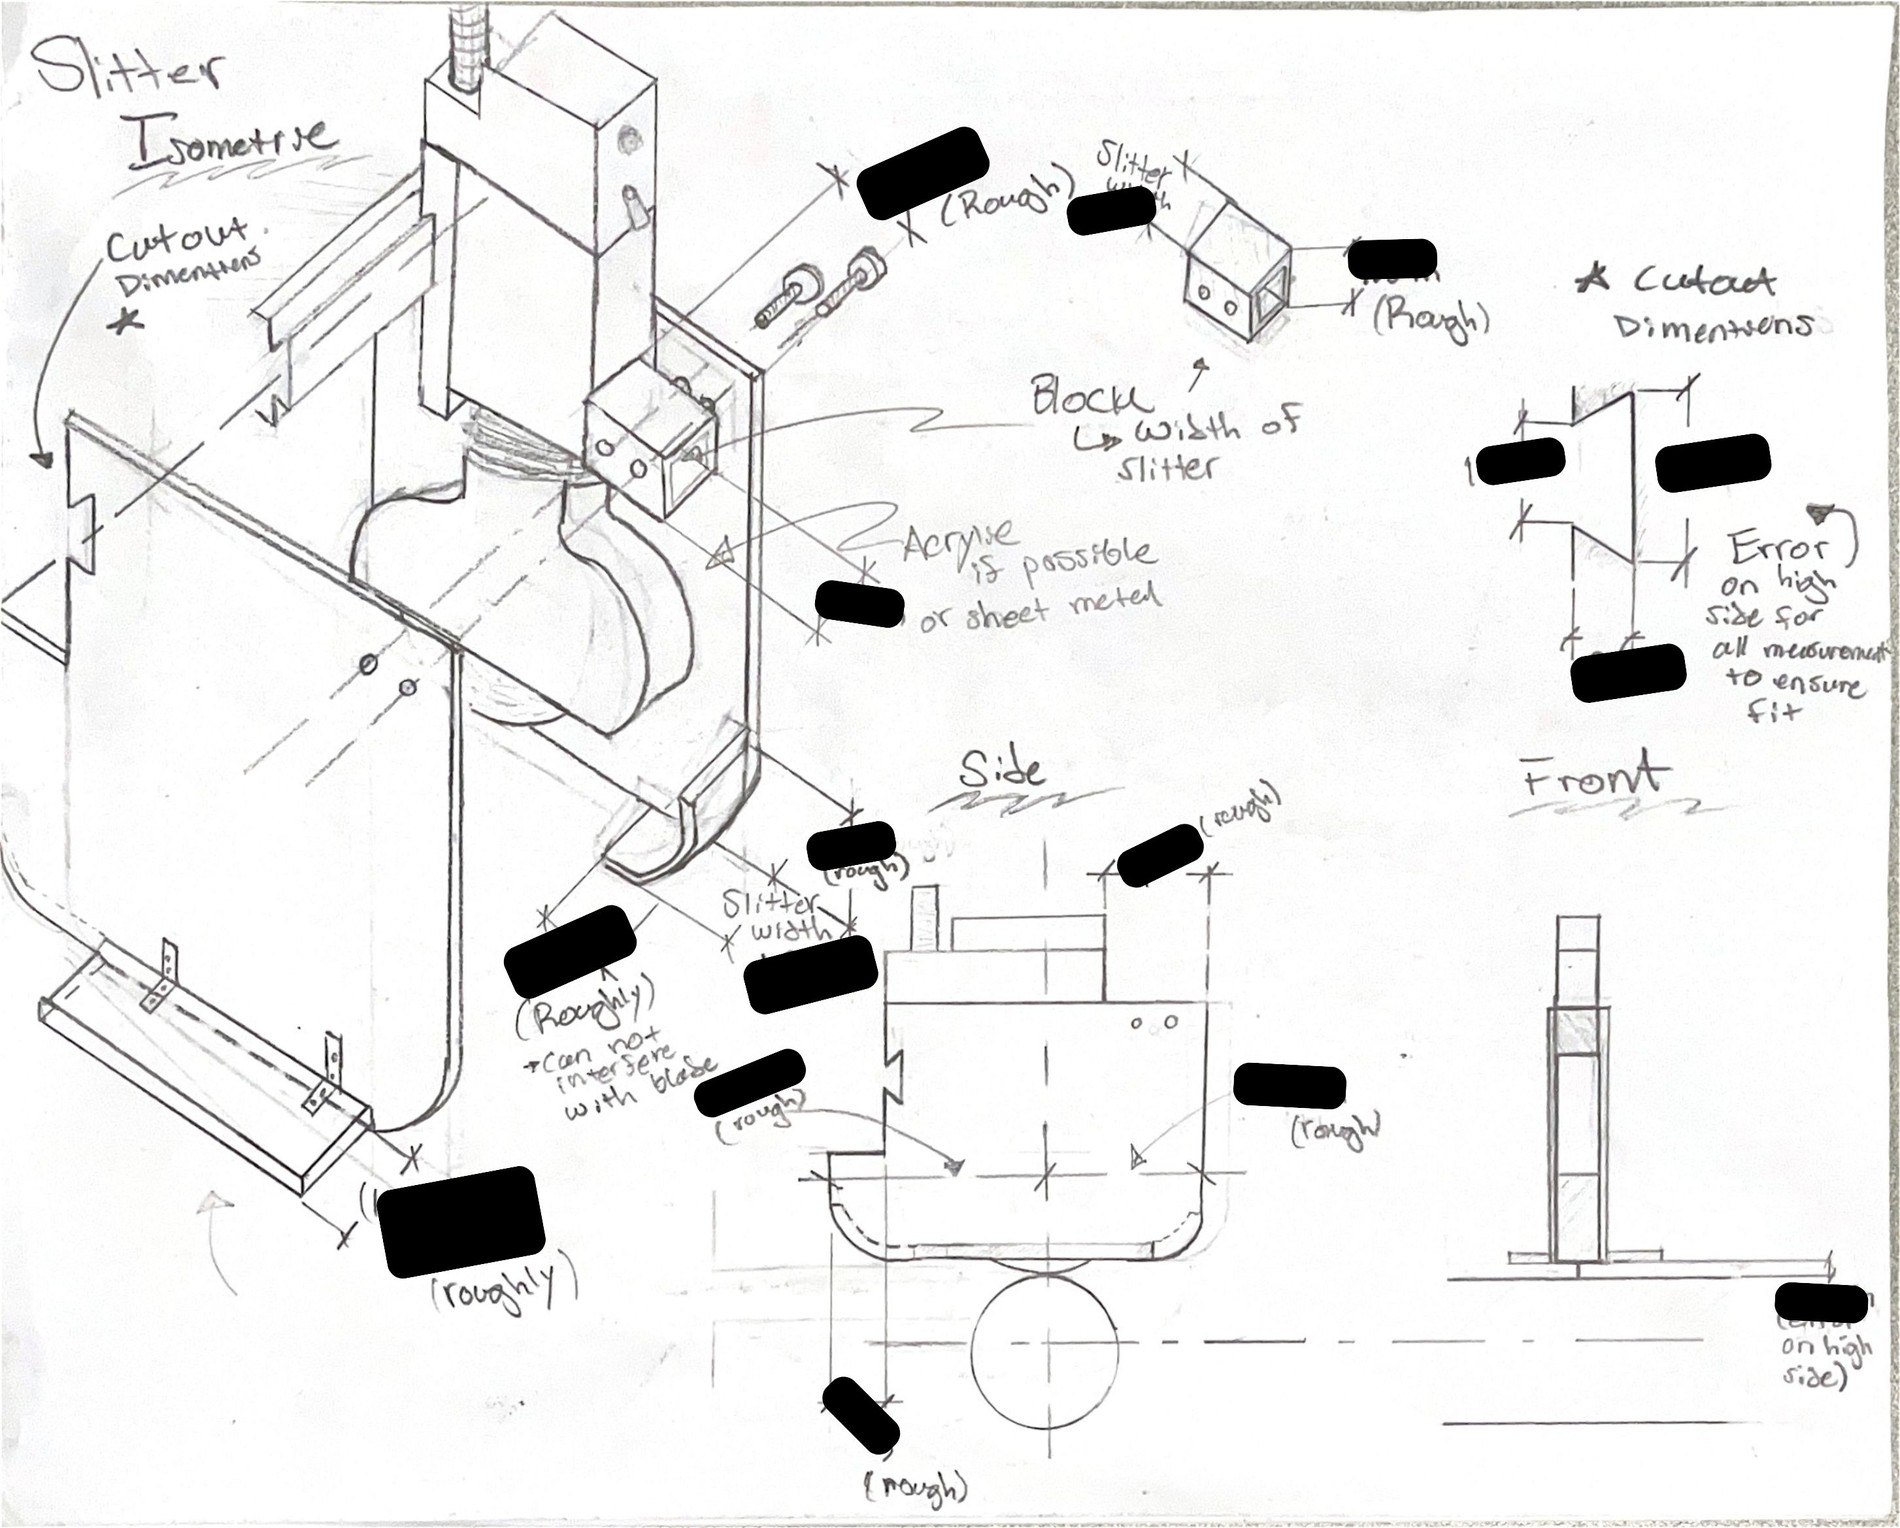 Slitter
Isometric
Cutout
Dimentions
★
(Rough)
Slitter
(Rough)
★ Cutout
Dimentions
Block
↳ Width of
slitter
Acrylic
if possible
or sheet metal
Error
on high
side for
all measurement
to ensure
fit
Side
Front
(rough)
(rough)
Slitter
width
(Roughly)
→ Can not
interfere
with blade
(rough)
(rough)
(roughly)
on high
side)
(rough)